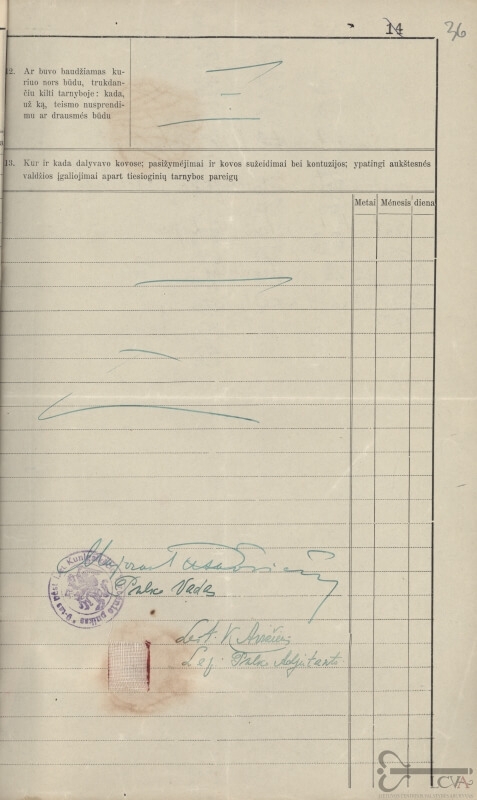 14 36
12. Ar buvo baudžiamas ku-
riuo nors būdu, trukdan-
čiu kilti tarnyboje: kada,
už ką, teismo nusprendi-
mu ar drausmės būdu
13. Kur ir kada dalyvavo kovose; pasižymėjimai ir kovos sužeidimai bei kontuzijos; ypatingi aukštesnės
valdžios įgaliojimai apart tiesioginių tarnybos pareigų
Metai Mėnesis diena
Pulko Vadas
Leit.
Pulko Adjutants
LCVA